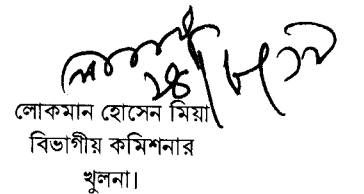 লোকমান হোসেন মিয়া
বিভাগীয় কমিশনার
খুলনা।